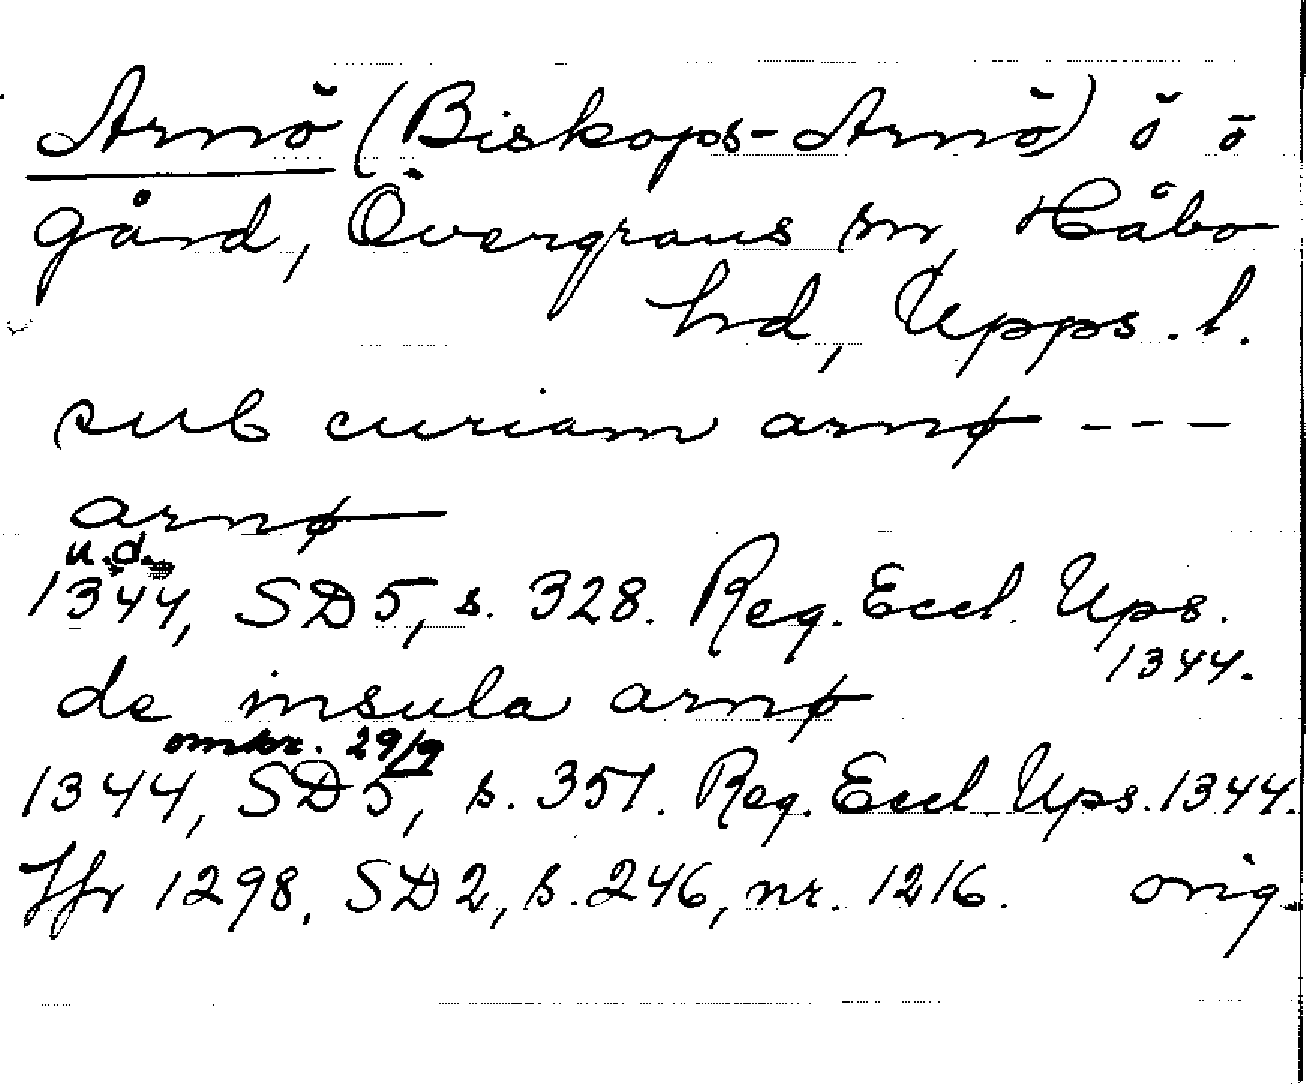 Arnö (Biskops-Arnö) ö ö
gård, Övergrans sn, Håbo
hd, Upps. l.
sub curiam arnø ---
arnø
u.d.
1344, SD 5, s. 328. Reg. Eccl. Ups.
1344.
de insula arnø
omkr. 29/9
1344, SD 5, s. 351. Reg. Eccl Ups. 1344.
Jfr 1298, SD 2, s. 246, nr. 1216. orig.